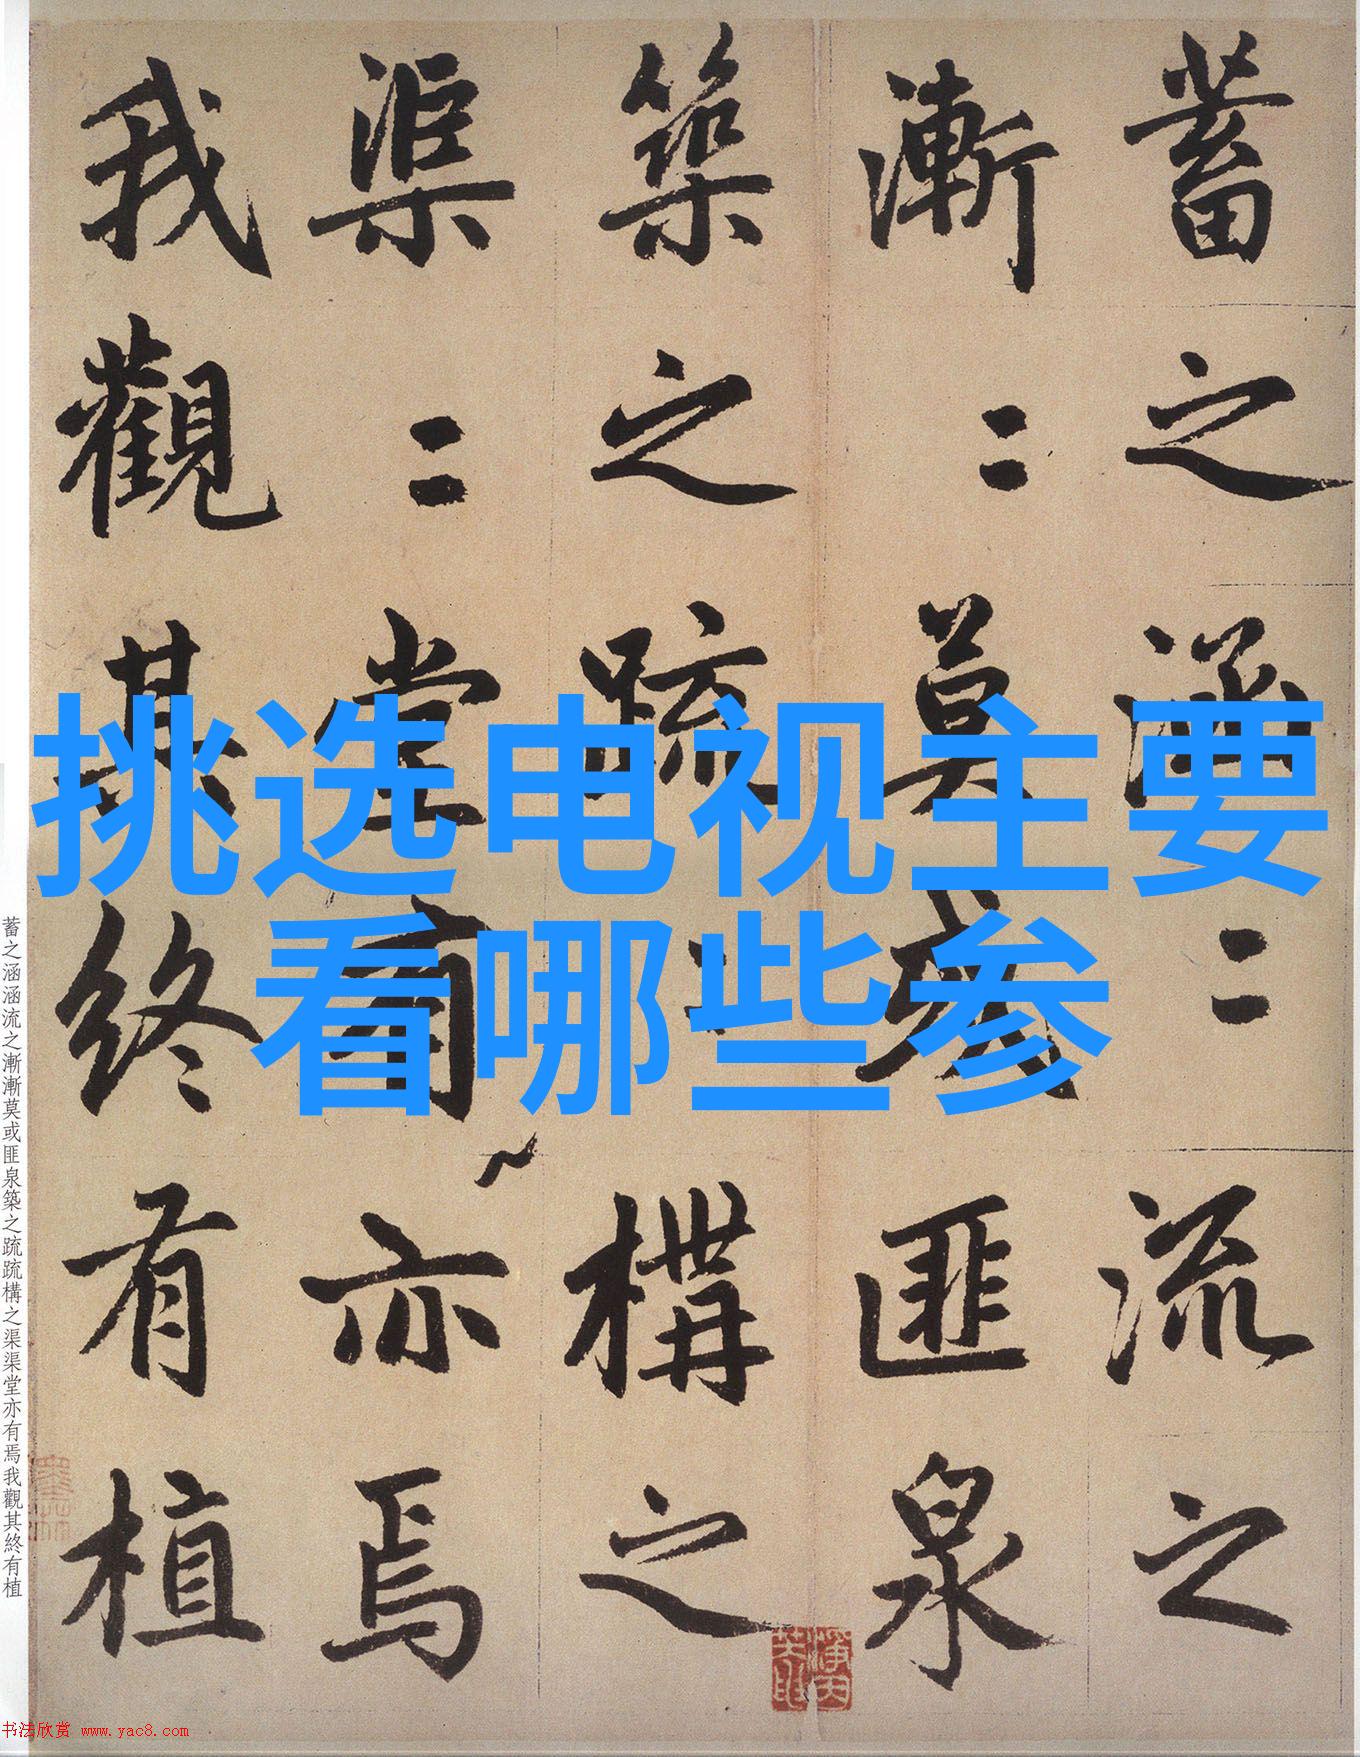 蓄之涵〻流之
漸〻莫或匪泉
築之疏〻構之
渠〻堂有亦焉
我觀其終有植
挑选电视主要
看哪些参
蓄之涵涵流之漸漸莫或匪泉築之疏疏構之渠渠堂亦有焉我觀其終有植
书法欣赏 www.yac8.com